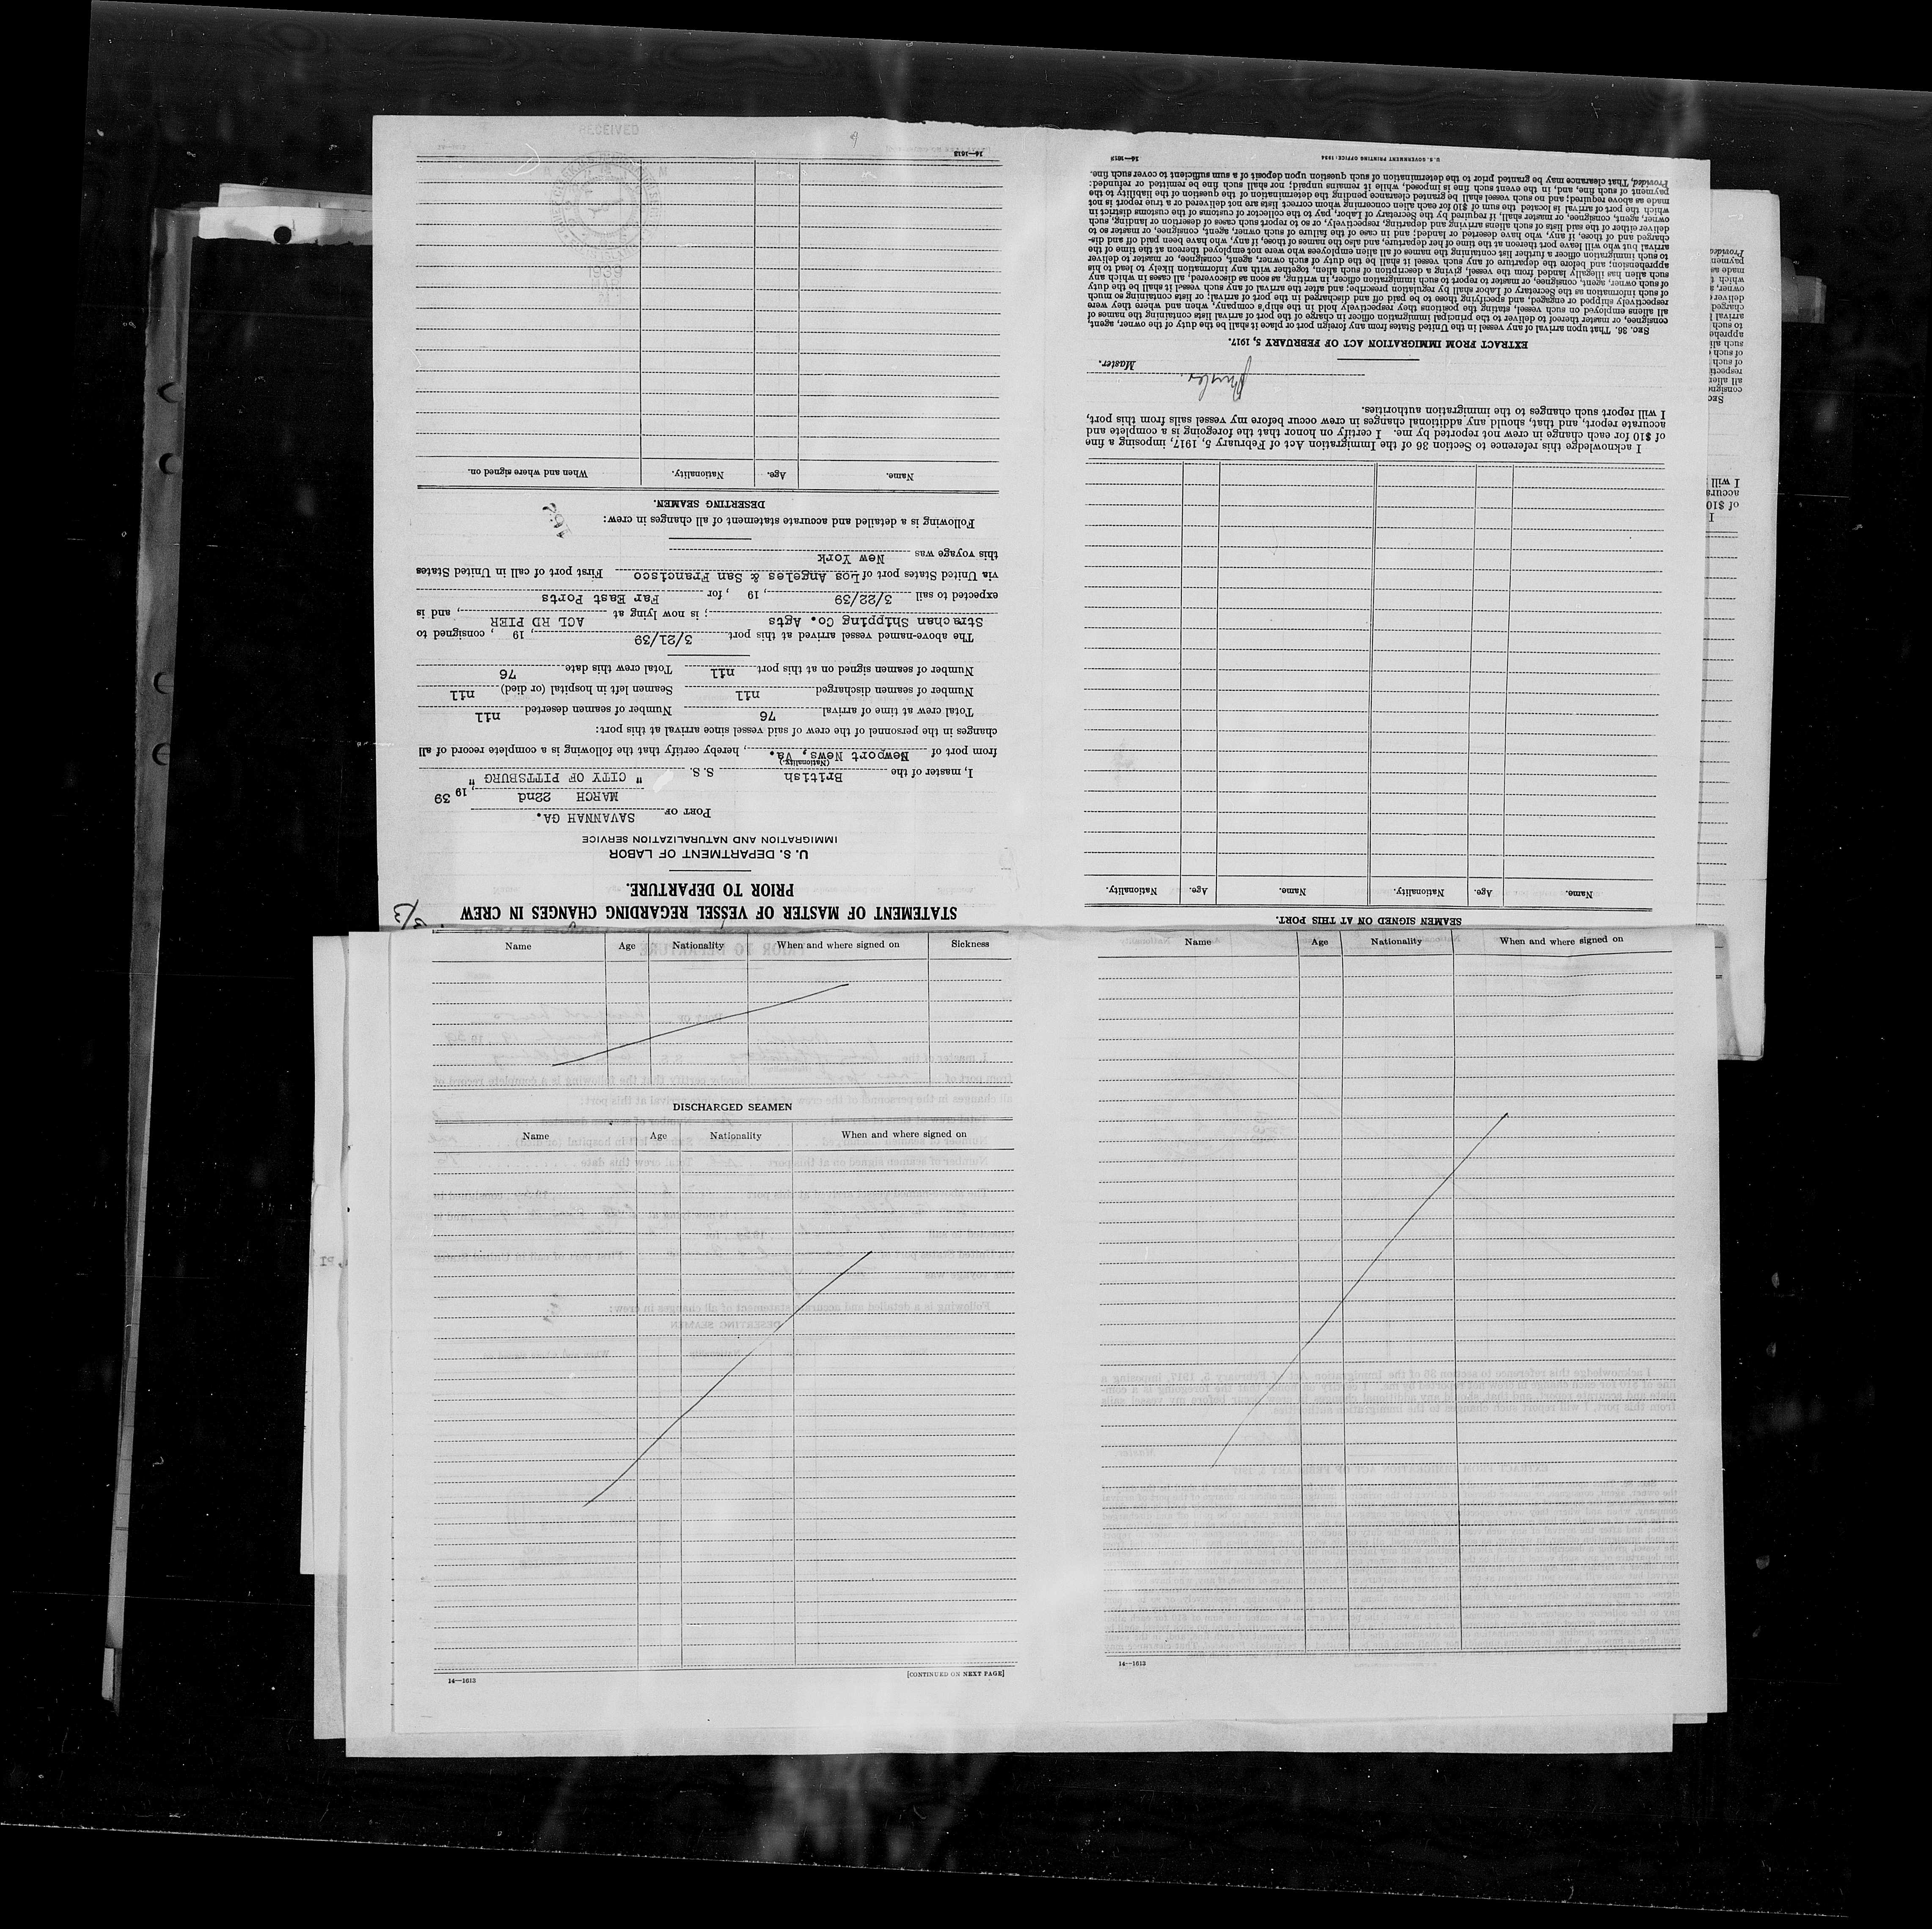 STATEMENT OF MASTER OF VESSEL REGARDING CHANGES IN CREW
PRIOR TO DEPARTURE.
U. S. DEPARTMENT OF LABOR
IMMIGRATION AND NATURALIZATION SERVICE
PORT OF SAVANNAH GA.
MARCH 22nd, 19 39
I, master of the British S.S. " CITY OF PITTSBURG "
(Nationality.)
from port of Newport News, Va., hereby certify that the following is a complete record of all
changes in the personnel of the crew of said vessel since arrival at this port:
Total crew at time of arrival 76 Number of seamen deserted nil
Number of seamen discharged nil Seamen left in hospital (or died) nil
Number of seamen signed on at this port nil Total crew this date 76
The above-named vessel arrived at this port 3/21/39, 19 , consigned to
Strachan Shipping Co. Agts; is now lying at ACL RD PIER, and is
expected to sail 3/22/39, 19 , for Far East Ports
via United States port of Los Angeles & San Francisco First port of call in United States
this voyage was New York
Following is a detailed and accurate statement of all changes in crew:
DESERTING SEAMEN.
Name. Age. Nationality. When and where signed on.
14—1613
RECEIVED
1939
SEAMEN SIGNED ON AT THIS PORT.
Name. Age. Nationality. Name. Age. Nationality.
I acknowledge this reference to Section 36 of the Immigration Act of February 5, 1917, imposing a fine
of $10 for each change in crew not reported by me. I certify on honor that the foregoing is a complete and
accurate report, and that, should any additional changes in crew occur before my vessel sails from this port,
I will report such changes to the immigration authorities.
Master.
EXTRACT FROM IMMIGRATION ACT OF FEBRUARY 5, 1917.
SEC. 36. That upon arrival of any vessel in the United States from any foreign port or place it shall be the duty of the owner, agent,
consignee, or master thereof to deliver to the principal immigration officer in charge of the port of arrival lists containing the names of
all aliens employed on such vessel, stating the positions they respectively hold in the ship's company, when and where they were
respectively shipped or engaged, and specifying those to be paid off and discharged in the port of arrival; or lists containing so much
of such information as the Secretary of Labor shall by regulation prescribe; and after the arrival of any such vessel it shall be the duty
of such owner, agent, consignee, or master to report to such immigration officer, in writing, as soon as discovered, all cases in which any
such alien has illegally landed from the vessel, giving a description of such alien, together with any information likely to lead to his
apprehension; and before the departure of any such vessel it shall be the duty of such owner, agent, consignee, or master to deliver
to such immigration officer a further list containing the names of all alien employees who were not employed thereon at the time of the
arrival but who will leave port thereon at the time of her departure, and also the names of those, if any, who have been paid off and dis-
charged and of those, if any, who have deserted or landed; and in case of the failure of such owner, agent, consignee, or master so to
deliver either of the said lists of such aliens arriving and departing, respectively, or so to report such case of desertion or landing, such
owner, agent, consignee, or master shall, if required by the Secretary of Labor, pay to the collector of customs of the customs district in
which the port of arrival is located the sum of $10 for each alien concerning whom correct lists are not delivered or a true report is not
made as above required; and no such vessel shall be granted clearance pending the determination of the question of the liability to the
payment of such fine, and, in the event such fine is imposed, while it remains unpaid; nor shall such fine be remitted or refunded:
Provided, That clearance may be granted prior to the determination of such question upon deposit of a sum sufficient to cover such fine.
U. S. GOVERNMENT PRINTING OFFICE: 1934
14—1613
Name Age Nationality When and where signed on Sickness
DISCHARGED SEAMEN
Name Age Nationality When and where signed on
14—1613
[CONTINUED ON NEXT PAGE]
Name Age Nationality When and where signed on
14—1613